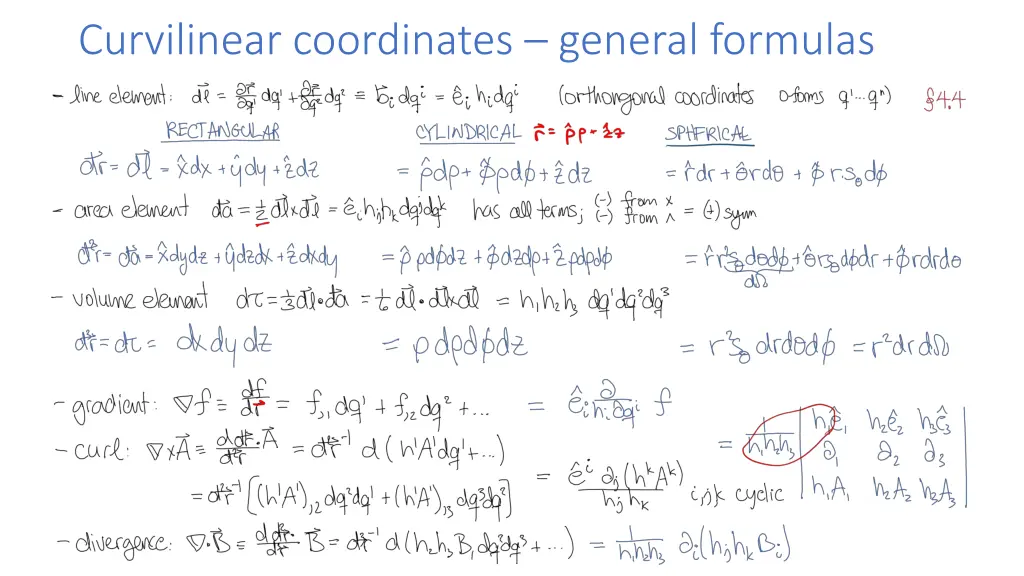 Curvilinear coordinates – general formulas
- line element: dl⃗ = ∂r⃗/∂q¹ dq¹ + ∂r⃗/∂q² dq² ≡ b⃗ᵢ dqⁱ = êᵢ hᵢ dqⁱ (orthongonal coordinates 0-forms q¹...qⁿ) §4.4
RECTANGULAR CYLINDRICAL r⃗ = ρ̂ρ + ẑz SPHERICAL
dr⃗ = dl⃗ = x̂dx + ŷdy + ẑdz = ρ̂dρ + φ̂ρdφ + ẑdz = r̂dr + θ̂rdθ + φ̂ r s_θ dφ
- area element da⃗ = ½ dl⃗×dl⃗ = êᵢ hⱼhₖ dqʲdqᵏ has all terms; (-) from × (-) from ∧ = (+) symm
d²r⃗ = da⃗ = x̂dydz + ŷdzdx + ẑdxdy = ρ̂ρdφdz + φ̂dzdρ + ẑρdρdφ = r̂r²s_θ dθdφ + θ̂rs_θ dφdr + φ̂rdrdθ
dΩ
- volume element dτ = ⅓ dl⃗·da⃗ = ⅙ dl⃗·dl⃗×dl⃗ = h₁h₂h₃ dq¹dq²dq³
d³r⃗ = dτ = dx dy dz = ρdρdφdz = r²s_θ drdθdφ = r²drdΩ
- gradient: ∇f ≡ df/dr⃗ = f,₁ dq¹ + f,₂ dq² + ... = êᵢ ∂/hᵢ∂qⁱ f
- curl: ∇×A⃗ ≡ d dr⃗·A⃗ / d²r⃗ = d²r⃗⁻¹ d(h¹A¹dq¹ + ...) = 1/h₁h₂h₃ | h₁ê₁ h₂ê₂ h₃ê₃ |
| ∂₁ ∂₂ ∂₃ |
| h₁A₁ h₂A₂ h₃A₃ |
= d²r⃗⁻¹ [(h¹A¹),₂ dq²dq¹ + (h¹A¹),₃ dq³dq¹] = êⁱ ∂ⱼ(hᵏAᵏ) / hⱼhₖ i,j,k cyclic
- divergence: ∇·B⃗ ≡ d d²r⃗· / d³r⃗ B⃗ = d³r⃗⁻¹ d(h₂h₃B₁dq²dq³ + ...) = 1/h₁h₂h₃ ∂ᵢ(hⱼhₖBᵢ)